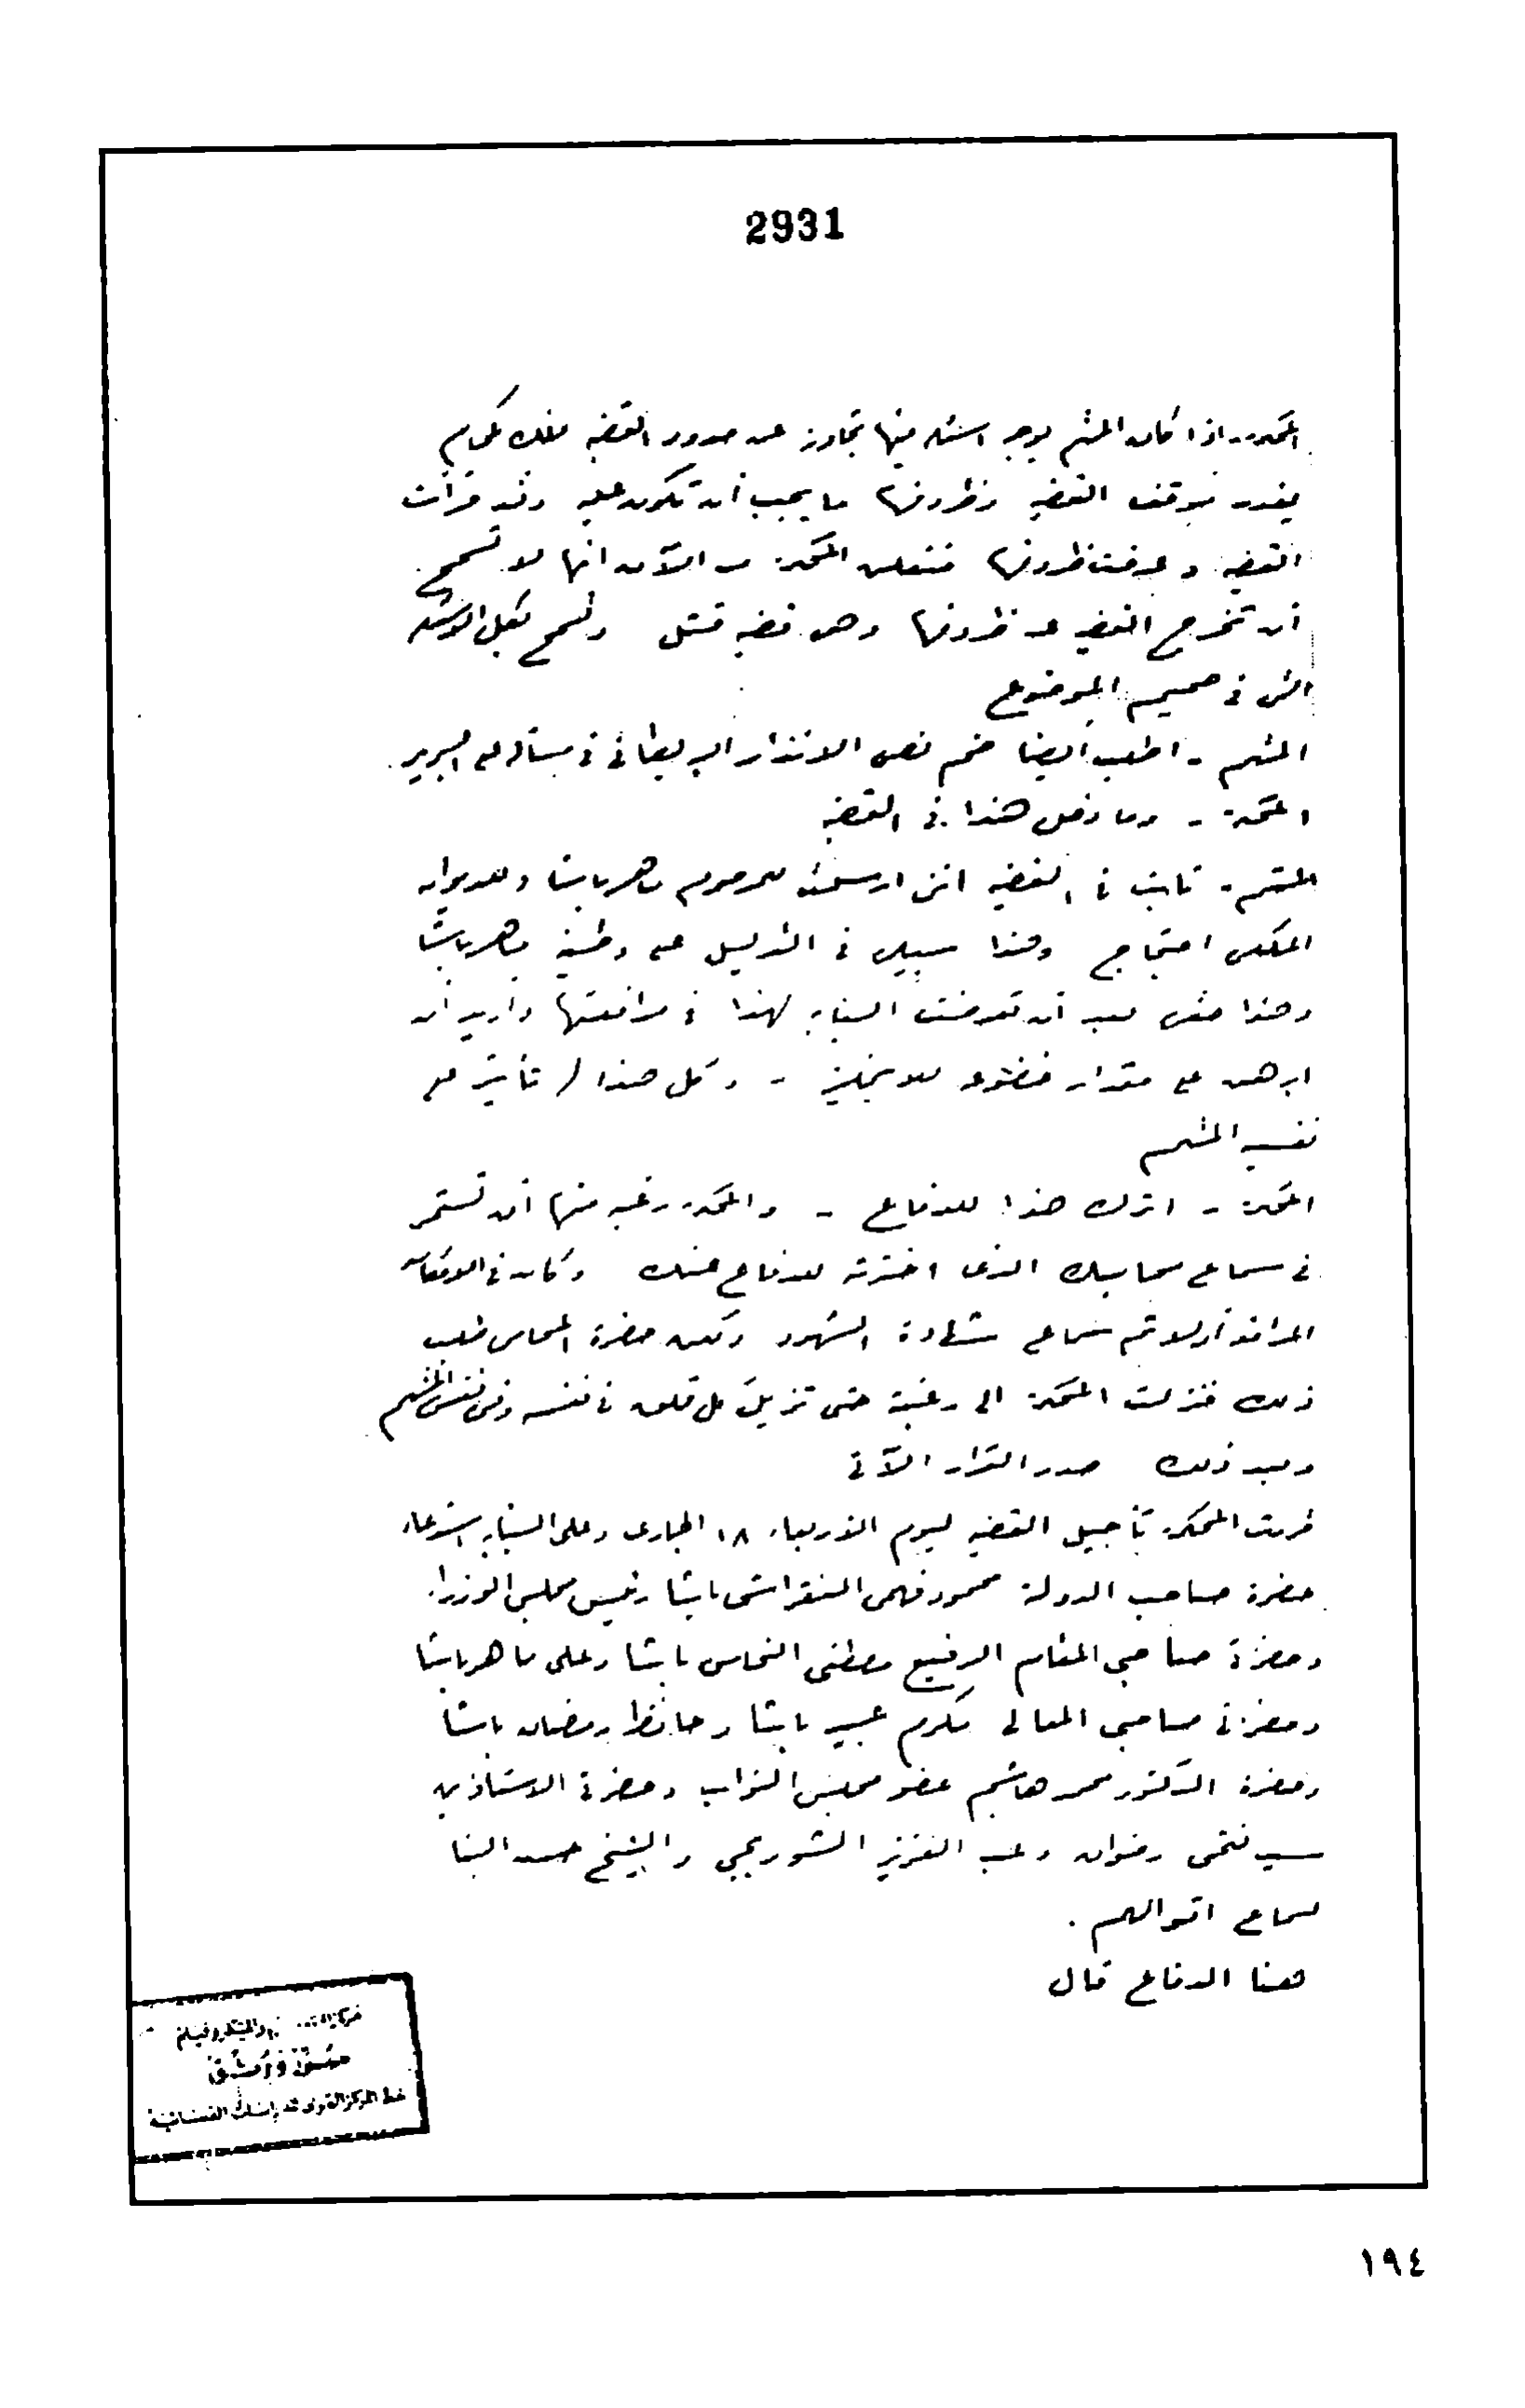 2931
المحكمة - اذا كان المتهم يوجه اسئله فيها تجاوز عن حدود القضيه فلك كمحام
يقدر موقف القضيه وظروفها ما يجب أن تكون عليه وقد قرأت
القضيه وعرفت ظروفها فتعلن المحكمة من الآن انها لا تسمح
أن تخرج القضيه عن ظروفها وهى قضيه قتل وتسمح بكل الاسئله
التى فى صميم الموضوع
المتهم - اطلب أيضا ضم نص الانذار البريطانى فى مسأله
المحكمة - وما دخل هذا فى القضيه
المتهم - ثابت فى القضيه اننى ارسلت للمرحوم ماهر باشا وللديوان
الملكى احتجاج وهذا سبيلى فى التدليل على وطنية ماهر باشا
وهذا حقى بعد أن تعرضت النيابه لهذا فى مرافعتها وأريد أن
ابرهن على مقدار خضوعه للانجليز - وكل هذا له تأثير على
نفسية المتهم
المحكمة - اترك هذا للدفاع - والمحكمة رغبه منها أن تستمر
فى سماع محاميك الذى اخترته للدفاع عنك وكان فى الامكان
المرافعة أولا ثم سماع شهادة الشهود ولكن حضرة المحامى طلب
ذلك فنزلت المحكمة الى رغبته حتى تزيل كل قلق فى نفسه وفى نفس المتهم
وبعد ذلك صدر القرار الآتى
قررت المحكمة تأجيل القضيه ليوم الاربعاء ١٨ الجارى وعلى النيابه استدعاء
حضرة صاحب الدولة محمود فهمى النقراشى باشا رئيس مجلس الوزراء
وحضرة صاحبى المقام الرفيع مصطفى النحاس باشا وعلى ماهر باشا
وحضرتى صاحبى المعالى مكرم عبيد باشا وحافظ رمضان باشا
وحضرة الدكتور محمد هاشم عضو مجلس النواب وحضرة الاستاذين
سيد فتحى رضوان وعبد العزيز الشوربجى والشيخ حسن البنا
لسماع اقوالهم .
هنا الدفاع قال
والميكروفيلم
١٩٤